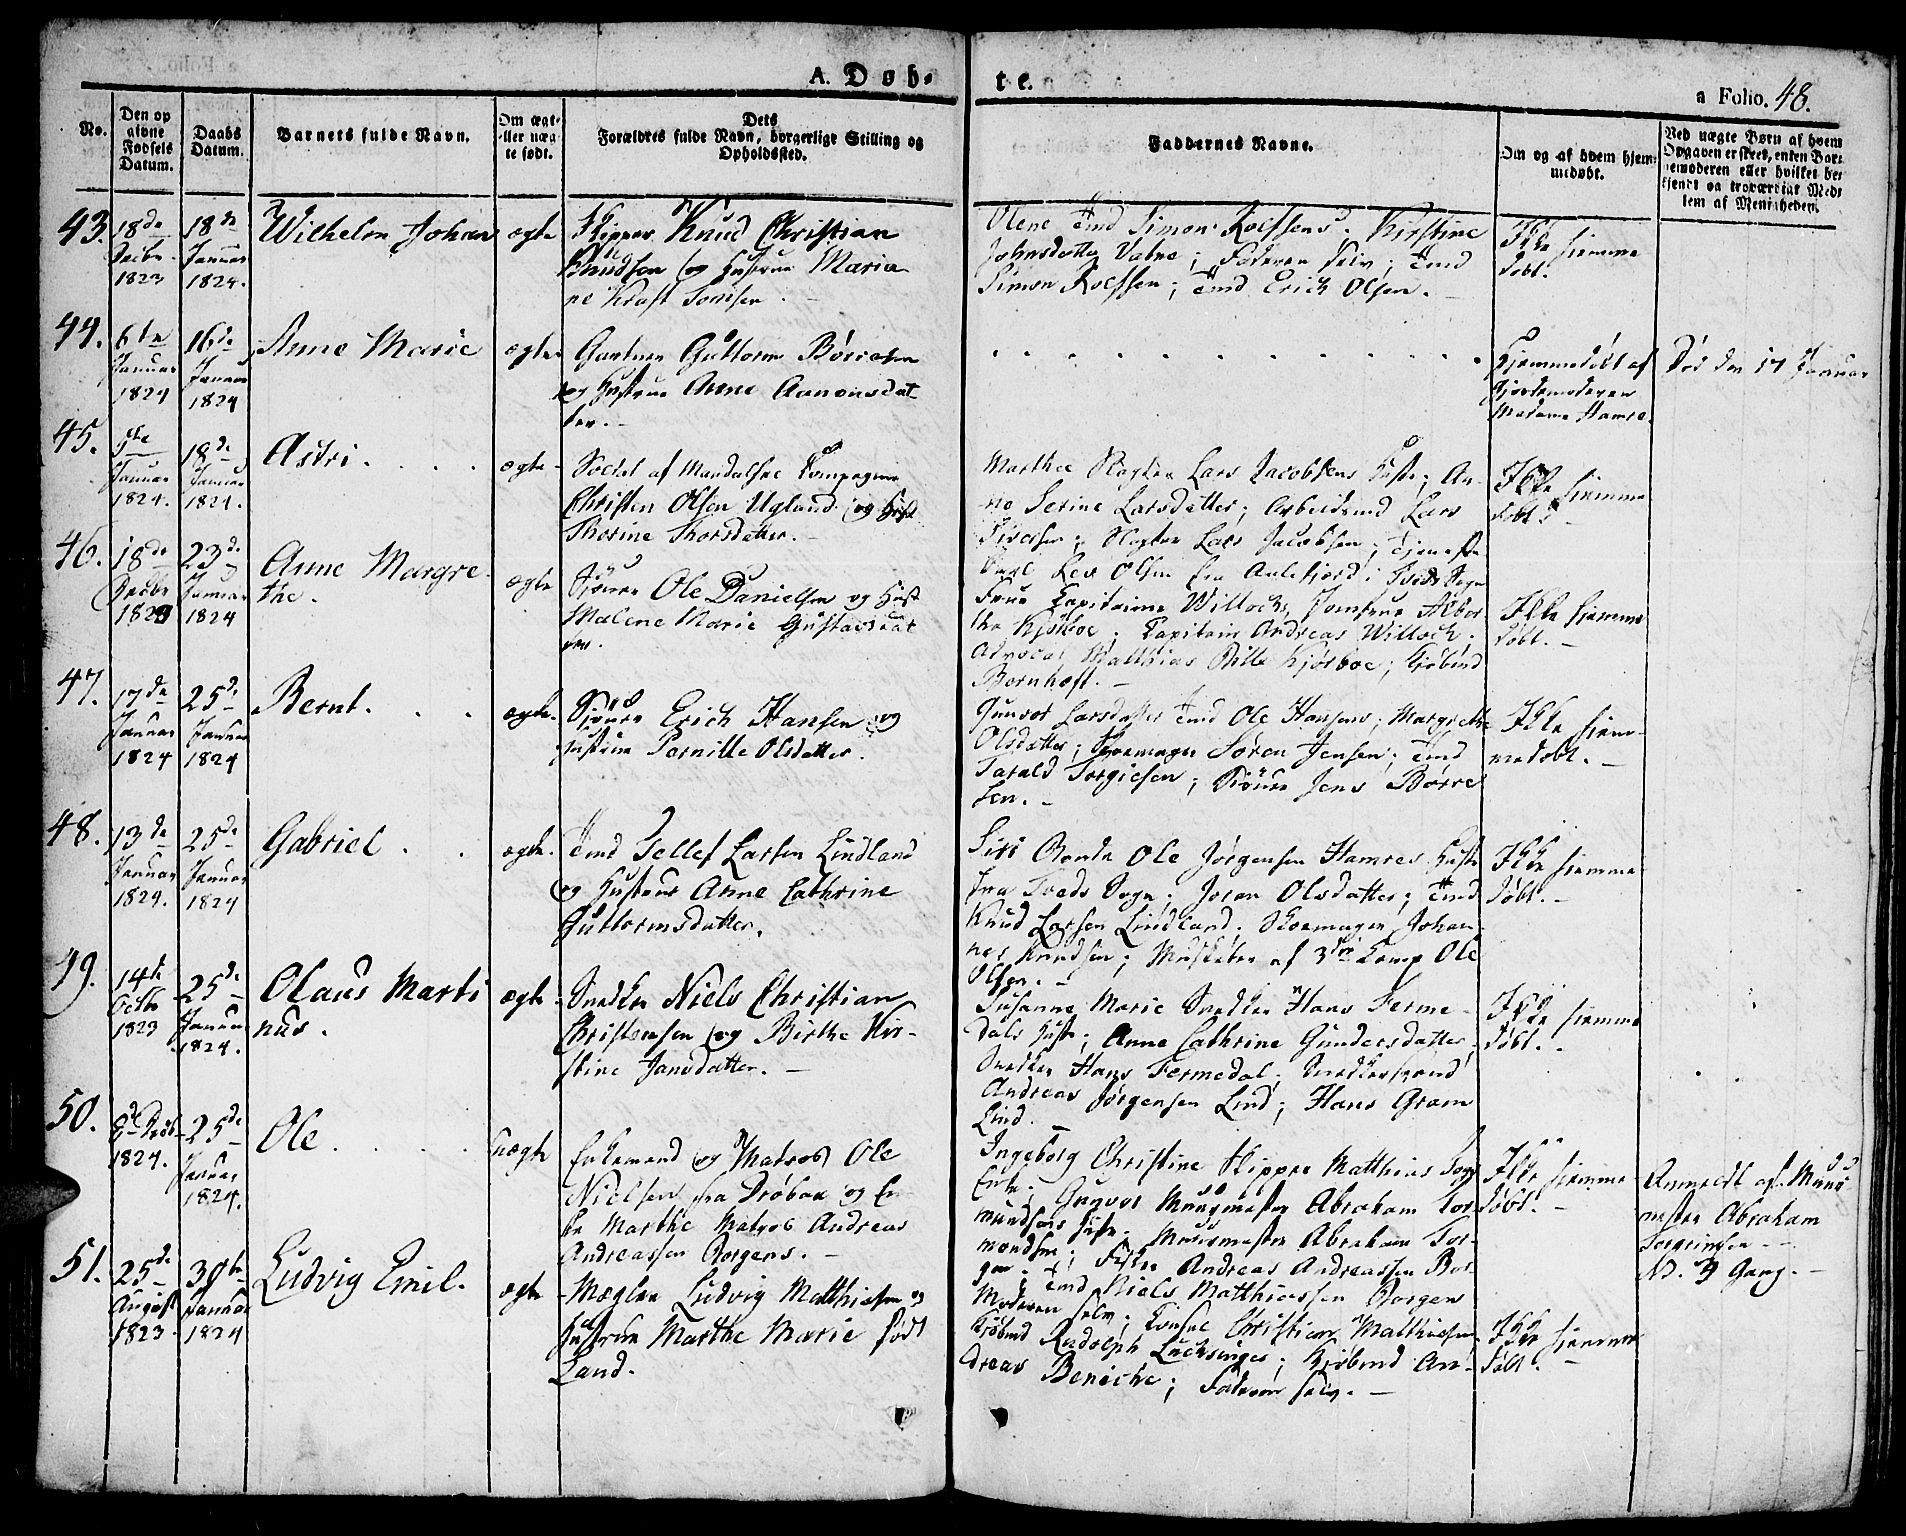 A. Døb-
te.
a Folio. 48.
No.
Den op
givne
Fødsels
Datum.
Daabs
Datum.
Barnets fulde Navn.
Om ægte
eller uæg-
te født.
Dets
Forældres fulde Navn, borgerlige Stilling og
Opholdssted.
Faddernes Navne.
Om og af hvem hjem-
medøbt.
Ved uægte Børn af hvem
Opgaven er skeet, enten Bar-
nemoderen eller hvilket be-
kjendt og troværdigt Med-
lem af Menigheden.
43.
18de
1823
18de
Januar
1824.
Wilhelm Johan
ægte
Skipper Knud Christian
Knudsen og Hustrue Maria-
ne Kraft Tomsen.
Olene Tmd Simon Roefsens. Kirstine
Johnsdatter Vatne; Faderen selv; Tmd
Simon Roefsen; Tmd Erich Olsen.
Ikke hiemme
døbt.
44.
6te
Januar
1824
16de
Januar
1824
Anne Marie
ægte
Gartner Guttorm Børiesen
og Hustrue Anne Aanonsdat
ter.
Hjemmedøbt af
Gjordemoderen
Madame Hamre.
Død den 17 Januar
45.
5te
Januar
1824.
18de
Januar
1824.
Astri.
ægte
Soldat af Mandalske Compagnie
Christen Olsen Ugland og Hust
Thorine Thorsdatter.
Marthe Slagter Lars Jacobsens Hustr; An-
ne Serine Larsdatter; Arbeidsmd Lars
Iversen; Slagter Lars Jacobsen; Tjeneste
Karl Lev Olsen fra Aalefjærd i Tveds Sogn
Ikke hiemme
døbt.
46.
18de
Decbr
1823
23de
Januar
1824
Anne Margre
the.
ægte
Tjener Ole Danielsen og Hust
Malene Marie Gustavsdat
ter.
Frue Capitaine Willochs, Jomfrue Albor
tha Kjørboe; Capitain Andreas Willoch.
Advocat Matthias Bille Kjørboe; Kjøbmd
Bornhoft.
Ikke hiemme
døbt.
47.
17de
Januar
1824
25de
Januar
1824
Bernt.
ægte.
Erich Hansen og
Hustrue Pernille Olsdatter.
Gunvor Larsdatter Tmd Ole Hansens; Margrethe
Olsdatter; Skomager Søren Jensen; Tmd
Tarald Torgiesen; Jens Børre
sen.
Ikke hiem-
medøbt.
48.
13de
Januar
1824.
25de
Januar
1824
Gabriel
ægte.
Tmd Tellef Larsen Lindland
og Hustrue Anne Cathrine
Guttormsdatter.
Siri Bonde Ole Jørgensen Hamres Hustr
fra Tveds Sogn; Joran Olsdatter; Tmd
Knud Larsen Lindland. Skomager Johan-
nes Knudsen; Musketer af 3die Comp Ole
Olsen.
Ikke hiemme
døbt.
49.
14de
Octbr
1823
25de
Januar
1824.
Olaus Marti
nus.
ægte
Snedker Niels Christian
Christensen og Birthe Kir-
stine Jansdatter.
Susanne Marie Snedker Hans Ferme-
dals Hustr; Anne Cathrine Gundersdatter.
Snedker Hans Fermedal; Snedkersvend
Andreas Jørgensen Lind; Hans Gram
Lind.
Ikke hiemme
døbt.
50.
1824.
25de
Januar
1824.
Ole
Uægte
Enkemand og Matros Ole
Nielsen fra Drøbak og En
ke Marthe Matros Andreas
Andreassen Borgens.
Ingeborg Christine Skipper Matthias
Enke; Gunvor Muurmester Abraham Tor-
Hustr. Muurmester Abraham Tor-
Andreas Andreassen Bor-
gen; Tmd Niels Matthiassen Borgen
Ikke hiemme
døbt.
Anmeldt af Muur
mester Abraham
Torgrimsen
N. 3 Gang.
51.
25de
August
1823.
30te
Januar
1824
Ludvig Emil.
ægte
Mægler Ludvig Matthiesen og
Hustrue Marthe Marie født
Land.
Moderen selv; Consul Christian Matthiesen.
Kjøbmd Rudolph Luchsinger; Kjøbmd An-
dreas Beniche; Faderen selv.
Ikke hiemme
døbt.